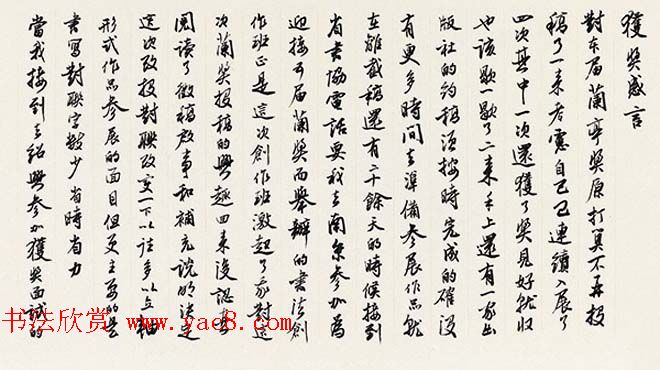 獲奬感言
對本届蘭亭奬原打算不再投
稿了一来考慮自己已連續入展了
四次其中一次還獲了奬見好就收
也該歇一歇了二来手上還有一家出
版社的约稿須按時完成的確没
有更多時间去準備参展作品就
在離截稿還有二十餘天的時候接到
省書協電話要我去南京参加為
迎接五届蘭奬而舉辦的書法創
作班正是這次創作班激起了我對這
次蘭奬投稿的興趣回来後認真
閲讀了徵稿啟事和補充説明决定
這次改投對聯改变一下以往多以立轴
形式作品参展的面目但更主要的是
書寫對聯字數少省時省力
當我接到去紹興参加獲奬面試的
书法欣赏 www.yac8.com